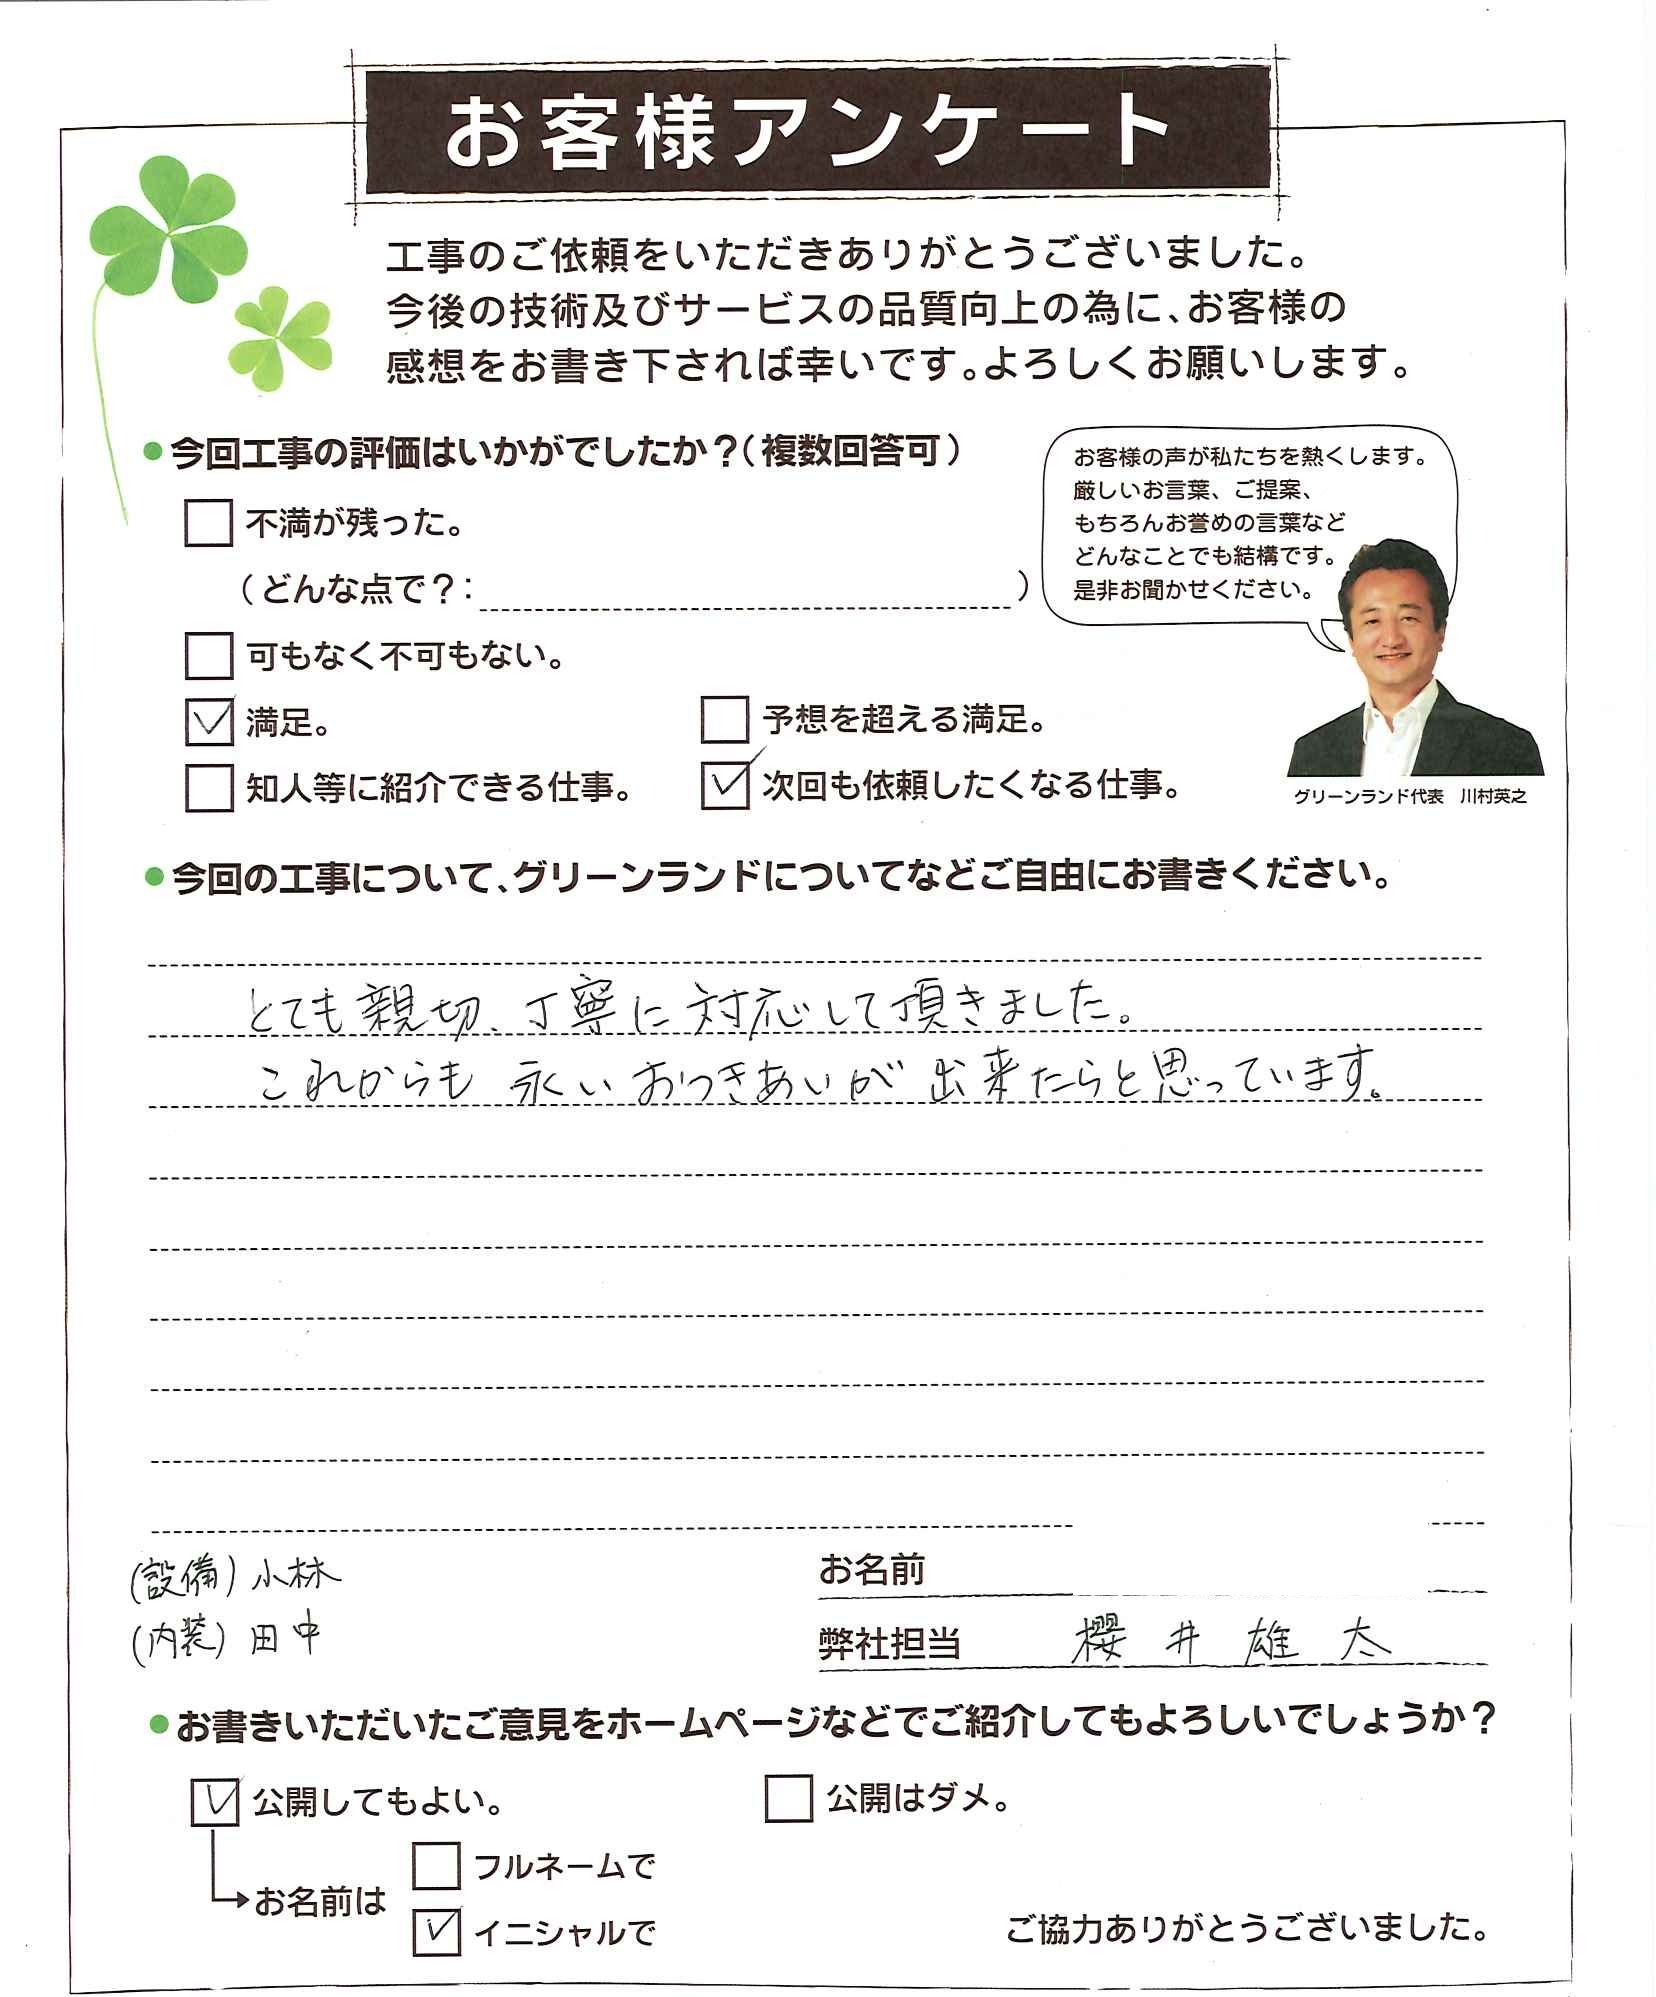 お客様アンケート
工事のご依頼をいただきありがとうございました。
今後の技術及びサービスの品質向上の為に、お客様の
感想をお書き下されば幸いです。よろしくお願いします。
●今回工事の評価はいかがでしたか？（複数回答可）
□ 不満が残った。
（どんな点で？：　）
□ 可もなく不可もない。
☑ 満足。
□ 予想を超える満足。
□ 知人等に紹介できる仕事。
☑ 次回も依頼したくなる仕事。
お客様の声が私たちを熱くします。
厳しいお言葉、ご提案、
もちろんお誉めの言葉など
どんなことでも結構です。
是非お聞かせください。
グリーンランド代表　川村英之
●今回の工事について、グリーンランドについてなどご自由にお書きください。
とても親切、丁寧に対応して頂きました。
これからも永いおつきあいが出来たらと思っています。
(設備) 小林
(内装) 田中
お名前
弊社担当　櫻井雄太
●お書きいただいたご意見をホームページなどでご紹介してもよろしいでしょうか？
☑ 公開してもよい。
□ 公開はダメ。
お名前は
□ フルネームで
☑ イニシャルで
ご協力ありがとうございました。